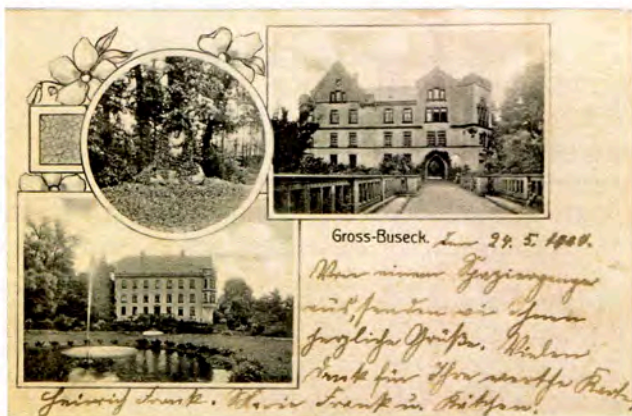 Gross-Buseck. den 24. 5. 1909.
Von einem Spaziergange
aus, senden wir Ihnen
herzliche Grüße. Vielen
Dank für Ihre werthe Karte
Heinrich Frank. Marie Frank u. Käthchen.